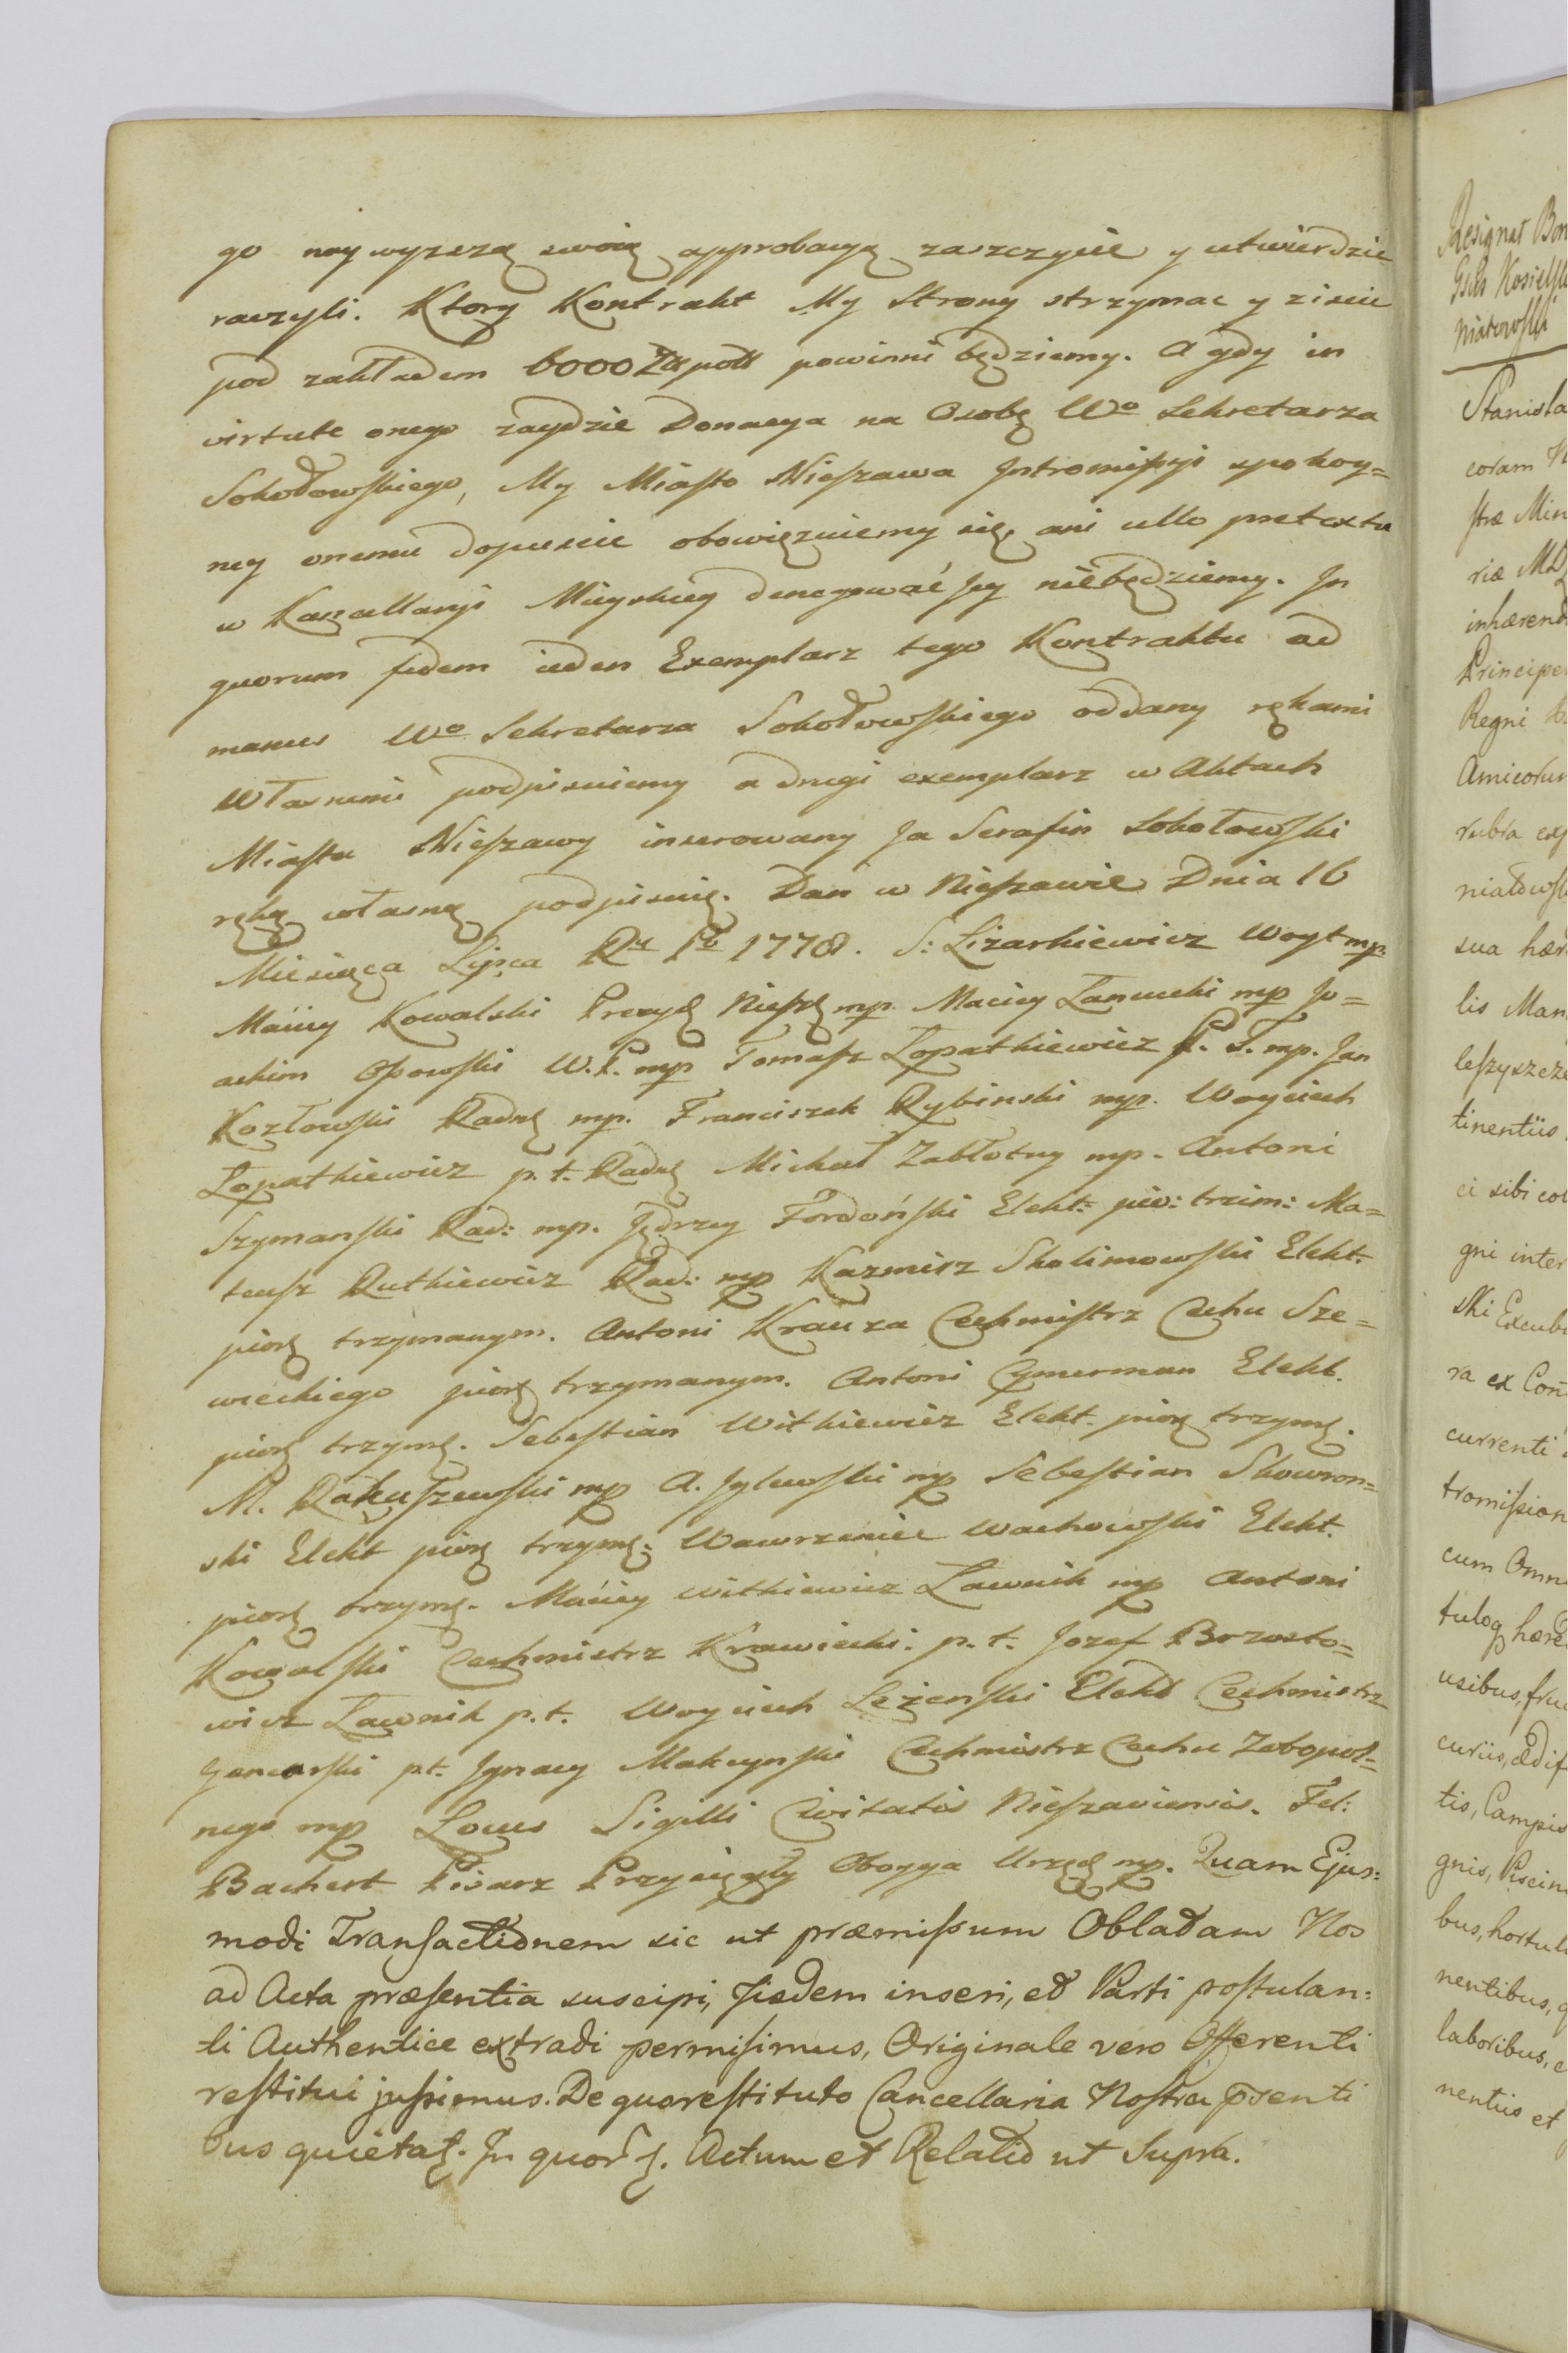 go naywyzszą swoią approbacyą zaszczycić y utwierdzić
raczyli. Ktory Kontrakt My Strony strzymac y ziscić
pod zakładem 6000 Zł poll powinni będziemy. A gdy in
virtute onego zaydzie Donacya na Osobę Wo Sekretarza
Sokołowskiego, My Miasto Nieszawa Intromissyi spokoy=
ney onemu dopuscić obowięzuiemy się, ani ullo pretextu
w Kancellaryi Mieyskiey denegować Jey niebędziemy. In
quorum fidem ieden Exemplarz tego Kontraktu ad
manus Wo Sekretarza Sokołowskiego oddany rękami
Własnemi podpisuiemy a drugi exemplarz w Aktach
Miasta Nieszawy inserowany Ja Serafin Sokołowski
ręką własną podpisuię. Dan w Nieszawie Dnia 16
Miesiąca Lipca Ru Pb 1778. S: Lizarkiewicz Woyt mp.
Maciey Kowalski Prezyd Niesz mp. Maciey Łanucki mp Jo=
achim Osowski W.P. mp Tomasz Łopatkiewicz P. T. mp. Jan
Kozłowski Radny mp. Franciszek Rybinski mp. Woyciech
Łopatkiewicz p. t. Radny Michał Zabłotny mp. Antoni
Szymanski Rad: mp. Jędrzey Fordoński Elekt: pió: trzim: Ma=
teusz Rutkiewicz Rad: mp Kazmirz Skolimowski Elekt.
piorę trzymanym. Antoni Krauza Cechmistrz Cechu Sze=
wieckiego piorę trzymanym. Antoni Cymerman Elekt.
piorę trzymę. Sebestian Witkiewicz Elekt. piorę trzymę.
M. Rakuszewski mp A. Jylewski mp Sebestian Skowron=
ski Elekt piorę trzymę: Wawrzeniec Wachowski Elekt.
piorę trzymę. Maciey Witkiewicz Ławnik mp Antoni
Kowalski Cechmistrz Krawiecki. p. t. Jozef Brzosto=
wicz Ławnik p. t. Woyciech Leżenski Elekt Cechmistrz
Garncarski pt. Jgnacy Makcynski Cechmistrz Cechu Zobopol=
nego mp Locus Sigilli Civitatis Nieszaviensis. Fel:
Bachert Pisarz Przysięgły Oboyga Urzęd mp. Quam Ejus=
modi Transactionem sic ut præmissum Oblatam Nos
ad Acta præsentia suscipi, Jisdem inseri, et Parti postulan:
ti Authentice extradi permisimus, Originale vero Offerenti
restitui jussimus. De quo restituto Cancellaria Nostra psenti
bus quietat. In quor f. Actum et Relatio ut Supra.
Resignat Bon
Gsis Kosielsk
niatowski
Stanisla
coram N
stræ Min
riæ MD
inhærend
Principe
Regni
Amicorum
rubra exp
niatowsk
sua hær
lis Man
leszyszcze
tinentiis
ei sibi col
gni inter
ski Excubi
ra ex Con
currenti
tromission
cum Omni
tuloq hære
usibus, fru
curiis, ædif
tis, Campis
gnis, Piscin
bus, hortul
nentibus, q
laboribus, e
nentiis et